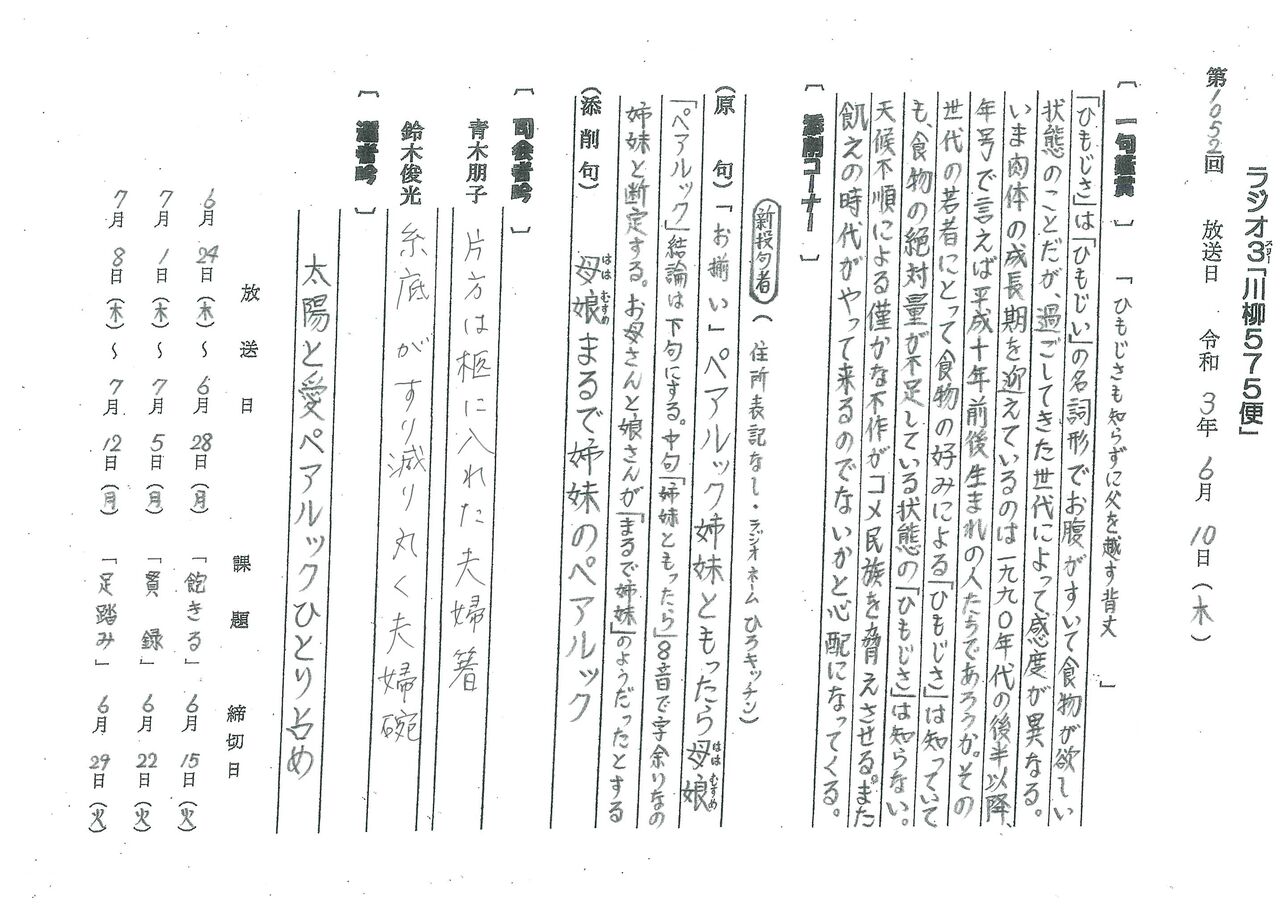 ラジオ3「川柳575便」
第1052回 放送日 令和3年6月10日(木)
〔一句鑑賞〕「ひもじさも知らずに父を越す背丈」
「ひもじさ」は「ひもじい」の名詞形でお腹がすいて食物が欲しい
状態のことだが、過ごしてきた世代によって、感度が異なる。
いま肉体の成長期を迎えているのは一九九〇年代の後半以降、
年号で言えば平成十年前後生まれの人たちであろうか。その
世代の若者にとって食物の好みによる「ひもじさ」は知っていて
も、食物の絶対量が不足している状態の「ひもじさ」は知らない。
天候不順による僅かな不作がコメ民族を脅えさせる。また
飢えの時代がやって来るのでないかと心配になってくる。
〔添削コーナー〕
新投句者(住所表記なし・ラジオネーム ひろキッチン)
(原句)「お揃い」ペアルック姉妹ともったら母娘
はは むすめ
「ペアルック」結論は下句にする。中句「姉妹ともったら」8音で字余りなの
姉妹と断定する。お母さんと娘さんが「まるで姉妹」のようだったとする
(添削句) 母娘まるで姉妹のペアルック
はは むすめ
〔司会者吟〕
青木朋子 片方は柩に入れた夫婦箸
鈴木俊光 糸底がすり減り丸く夫婦碗
〔選者吟〕
太陽と愛ペアルックひとり占め
放送日 課題 締切日
6月24日(木)〜6月28日(月)「飽きる」6月15日(火)
7月1日(木)〜7月5日(月)「貫録」6月22日(火)
7月8日(木)〜7月12日(月)「足踏み」6月29日(火)